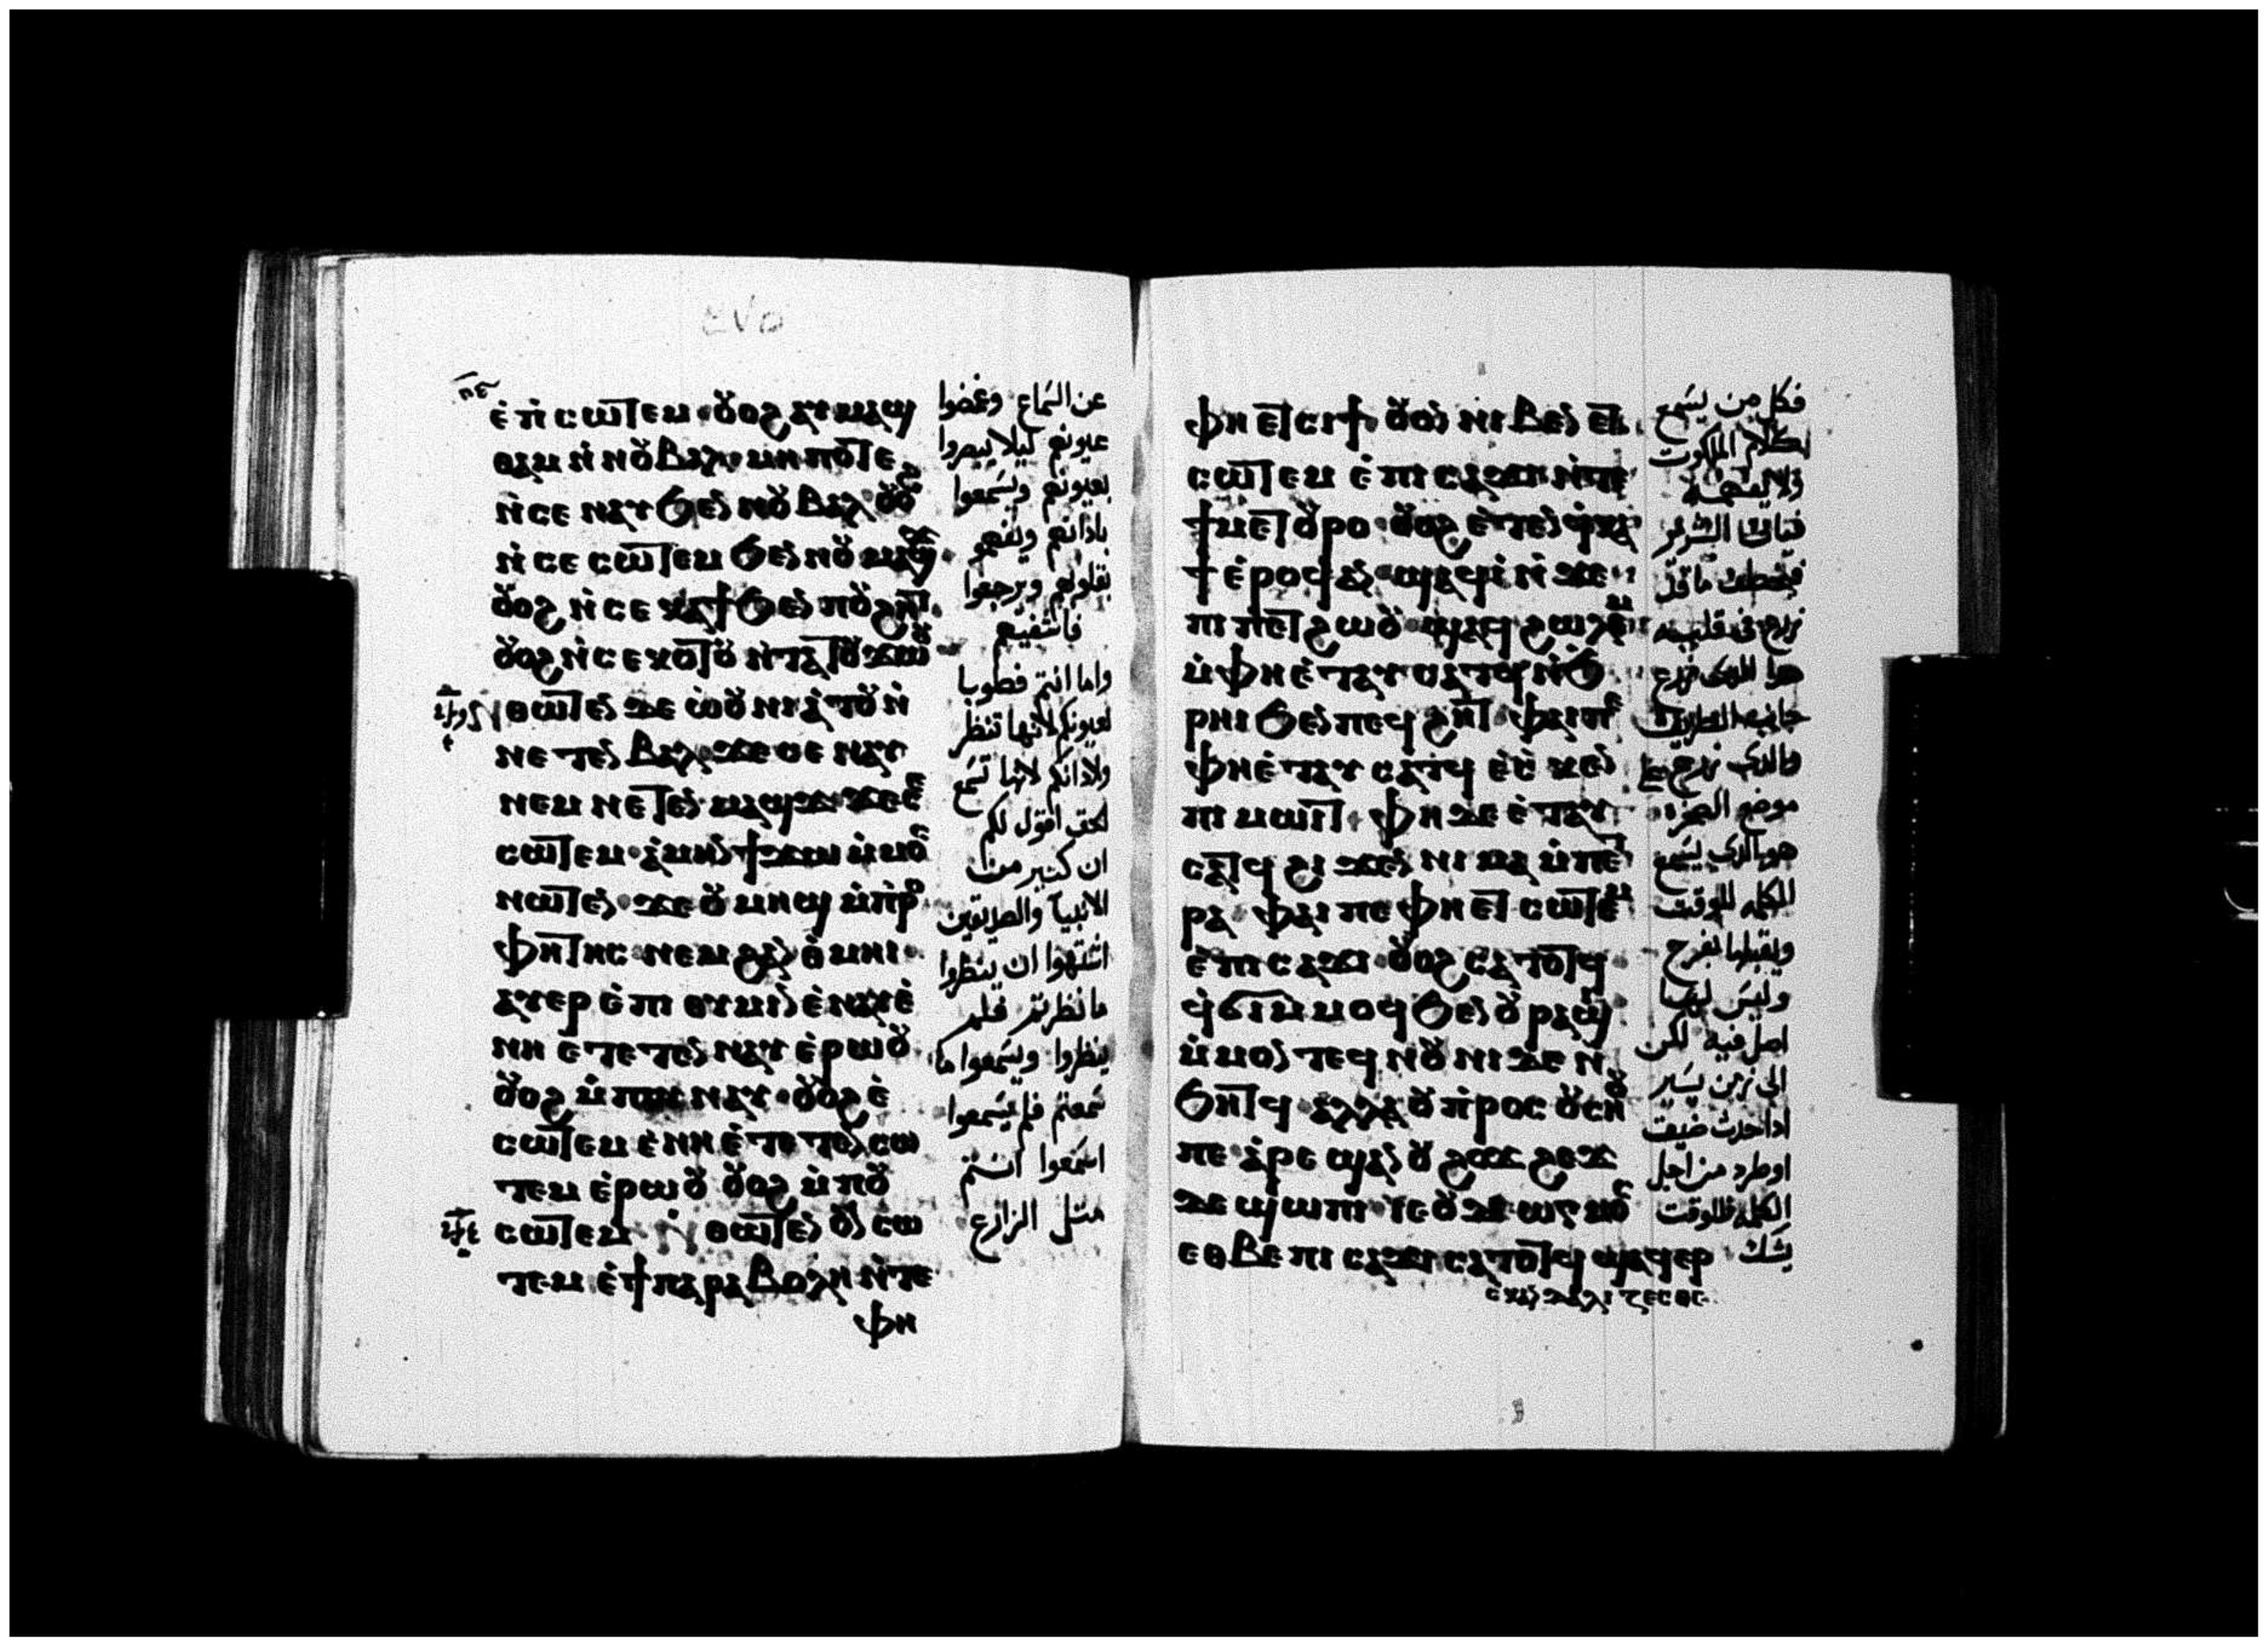 ⲡⲉ
ⲉ̀ⲡ̀ⲥⲱⲧⲉⲙ · ⲟⲩⲟϩ ⲁⲩⲙⲁϣ
ⲑⲁⲙ ⲛ̀ⲛⲟⲩⲃⲁⲗ ⲙⲏⲡⲟⲧⲉ
ⲛ̀ⲥⲉⲛⲁⲩ ϧⲉⲛ ⲛⲟⲩⲃⲁⲗ ⲟⲩⲟϩ
ⲛ̀ⲥⲉⲥⲱⲧⲉⲙ ϧⲉⲛ ⲛⲟⲩⲙⲁϣϫ
ⲟⲩⲟϩ ⲛ̀ⲥⲉⲕⲁϯ ϧⲉⲛ ⲡⲟⲩϩⲏⲧ
ⲟⲩⲟϩ ⲛ̀ⲥⲉⲕⲟⲧⲟⲩ ⲛ̀ⲧⲁⲧⲟⲩϫⲱⲟⲩ
ⲛ̀ⲑⲱⲧⲉⲛ ⲇⲉ ⲱ̀ⲟⲩⲛⲓⲁ̀ⲧⲟⲩ ⲛ̀
ⲛⲉⲧⲉⲛⲃⲁⲗ ϫⲉ ⲥⲉⲛⲁⲩ
ⲛⲉⲙ ⲛⲉⲧⲉⲛⲙⲁϣϫ ϫⲉ ⲥⲉ
ⲥⲱⲧⲉⲙ · ⲁ̀ⲙⲏⲛ ϯϫⲱ ⲙ̀ⲙⲟⲥ
ⲛⲱⲧⲉⲛ · ϫⲉ ⲟⲩⲙⲏϣ ⲙ̀ⲡ̀ⲣⲟ
ⲫⲏⲧⲏⲥ ⲛⲉⲙ ϩⲁⲛⲑ̀ⲙⲏⲓ ·
ⲁⲩⲉⲣⲉ̀ⲡⲓⲑⲩⲙⲓⲛ ⲉ̀ⲛⲁⲩ ⲉ̀
ⲛⲏ ⲉⲧⲉⲧⲉⲛⲛⲁⲩ ⲉ̀ⲣⲱⲟⲩ ·
ⲟⲩⲟϩ ⲙ̀ⲡⲟⲩⲛⲁⲩ · ⲟⲩⲟϩ ⲉ̀
ⲥⲱⲧⲉⲙ ⲉ̀ⲛⲏ ⲉ̀ⲧⲉⲧⲉⲛⲥⲱ
ⲧⲉⲙ ⲉ̀ⲣⲱⲟⲩ ⲟⲩⲟϩ ⲙ̀ⲡⲟⲩ
ⲥⲱⲧⲉⲙ ⲛ̀ⲑⲱⲧⲉⲛ ⲟⲩⲛ ⲥⲱ
ⲧⲉⲙ ⲉ̀ϯⲡⲁⲣⲁⲃⲟⲗⲏ ⲛ̀ⲧⲉ
ⲫⲏ
عن السماع وغمضوا
عيونهم ليلا يبصروا
بعيونهم ويسمعوا
باذانهم ويفهموا
بقلوبهم ويرجعوا
فاشفيهم
واما انتم فطوبا
لعيونكم لانها تنظر
ولاذانكم لانها تسمع
الحق اقول لكم
ان كثير من
الانبيآ والصديقين
اشتهوا ان ينظروا
ما نظرتم فلم
ينظروا ويسمعوا ما
سمعتم فلم يسمعوا
اسمعوا انتم
مثل الزارع
ⲫⲏ ⲉⲧⲥⲓϯ ⲟⲩⲟⲛ ⲛⲓⲃⲉⲛ ⲉⲧ
ⲥⲱⲧⲉⲙ ⲉ̀ⲡⲓⲥⲁϫⲓ ⲛ̀ⲧⲉ
ϯⲙⲉⲧⲟⲩⲣⲟ ⲟⲩⲟϩ ⲉ̀ⲧⲉⲛϥ̀ⲕⲁ
ϯ ⲉ̀ⲣⲟϥ ⲁⲛ ϣⲁϥⲓ̀ ⲛ̀ϫⲉ
ⲡⲓⲡⲉⲧϩⲱⲟⲩ ϣⲁϥϩⲱⲗⲉⲙ
ⲙ̀ⲫⲏ ⲉ̀ⲧⲁⲩⲥⲁⲧϥ ⲛ̀ϧ
ⲣⲏⲓ ϧⲉⲛ ⲡⲉϥϩⲏⲧ ⲫⲁⲓ ⲡⲉ
ⲫⲏ ⲉ̀ⲧⲁⲩⲥⲁⲧϥ ⲉ̀ⲥⲕⲉⲛ
ⲡⲓⲙⲱⲓⲧ · ⲫⲏ ⲇⲉ ⲉ̀ⲧⲁⲩ
ⲥⲁⲧϥ ϩⲓϫⲉⲛ ⲛⲓⲙⲁ ⲙ̀ⲡⲉⲧ
ⲣⲁ ⲫⲁⲓ ⲡⲉ ⲫⲏ ⲉⲧⲥⲱⲧⲉⲙ
ⲉ̀ⲡⲓⲥⲁϫⲓ ⲟⲩⲟϩ ⲥⲁⲧⲟⲧϥ
ϥ̀ϭⲓ ⲙ̀ⲙⲟϥ ϧⲉⲛ ⲟⲩⲣⲁϣⲓ
ⲙ̀ⲙⲟⲛⲧⲉϥ ⲛⲟⲩⲛⲓ ⲇⲉ ⲛ̀
ϧⲏⲧϥ ⲁⲗⲗⲁ ⲟⲩⲡ̀ⲣⲟⲥ ⲟⲩⲥⲏⲟⲩ
ⲡⲉ ⲁ̀ⲣⲉϣⲁⲛ ⲟⲩϩⲟϫϩⲉϫ
ⲇⲉ ϣⲱⲡⲓ ⲓⲉ ⲟⲩⲇⲓⲱⲅⲙⲟⲥ
ⲉⲑⲃⲉ ⲡⲓⲥⲁϫⲓ ⲥⲁⲧⲟⲧϥ ϣⲁϥⲉⲣ
ⲥⲕⲁⲛⲇⲁⲗⲓⲍⲉⲥⲑⲉ
فكل من يسمع
كلام الملكوت
ولا يفهمه
فياتى الشرير
فيخطف ما قد
زرع فى قلبه
هدا الدى زرع
جانب الطريق
والدى زرع على
موضع الصخره
هو الدى يسمع
الكلمه للوقت
ويقبلها بفرح
وليس لها
اصل فيه لكن
الى زمن يسير
ادا حدث ضيق
او طرد من اجل
الكلمه فللوقت
يشك